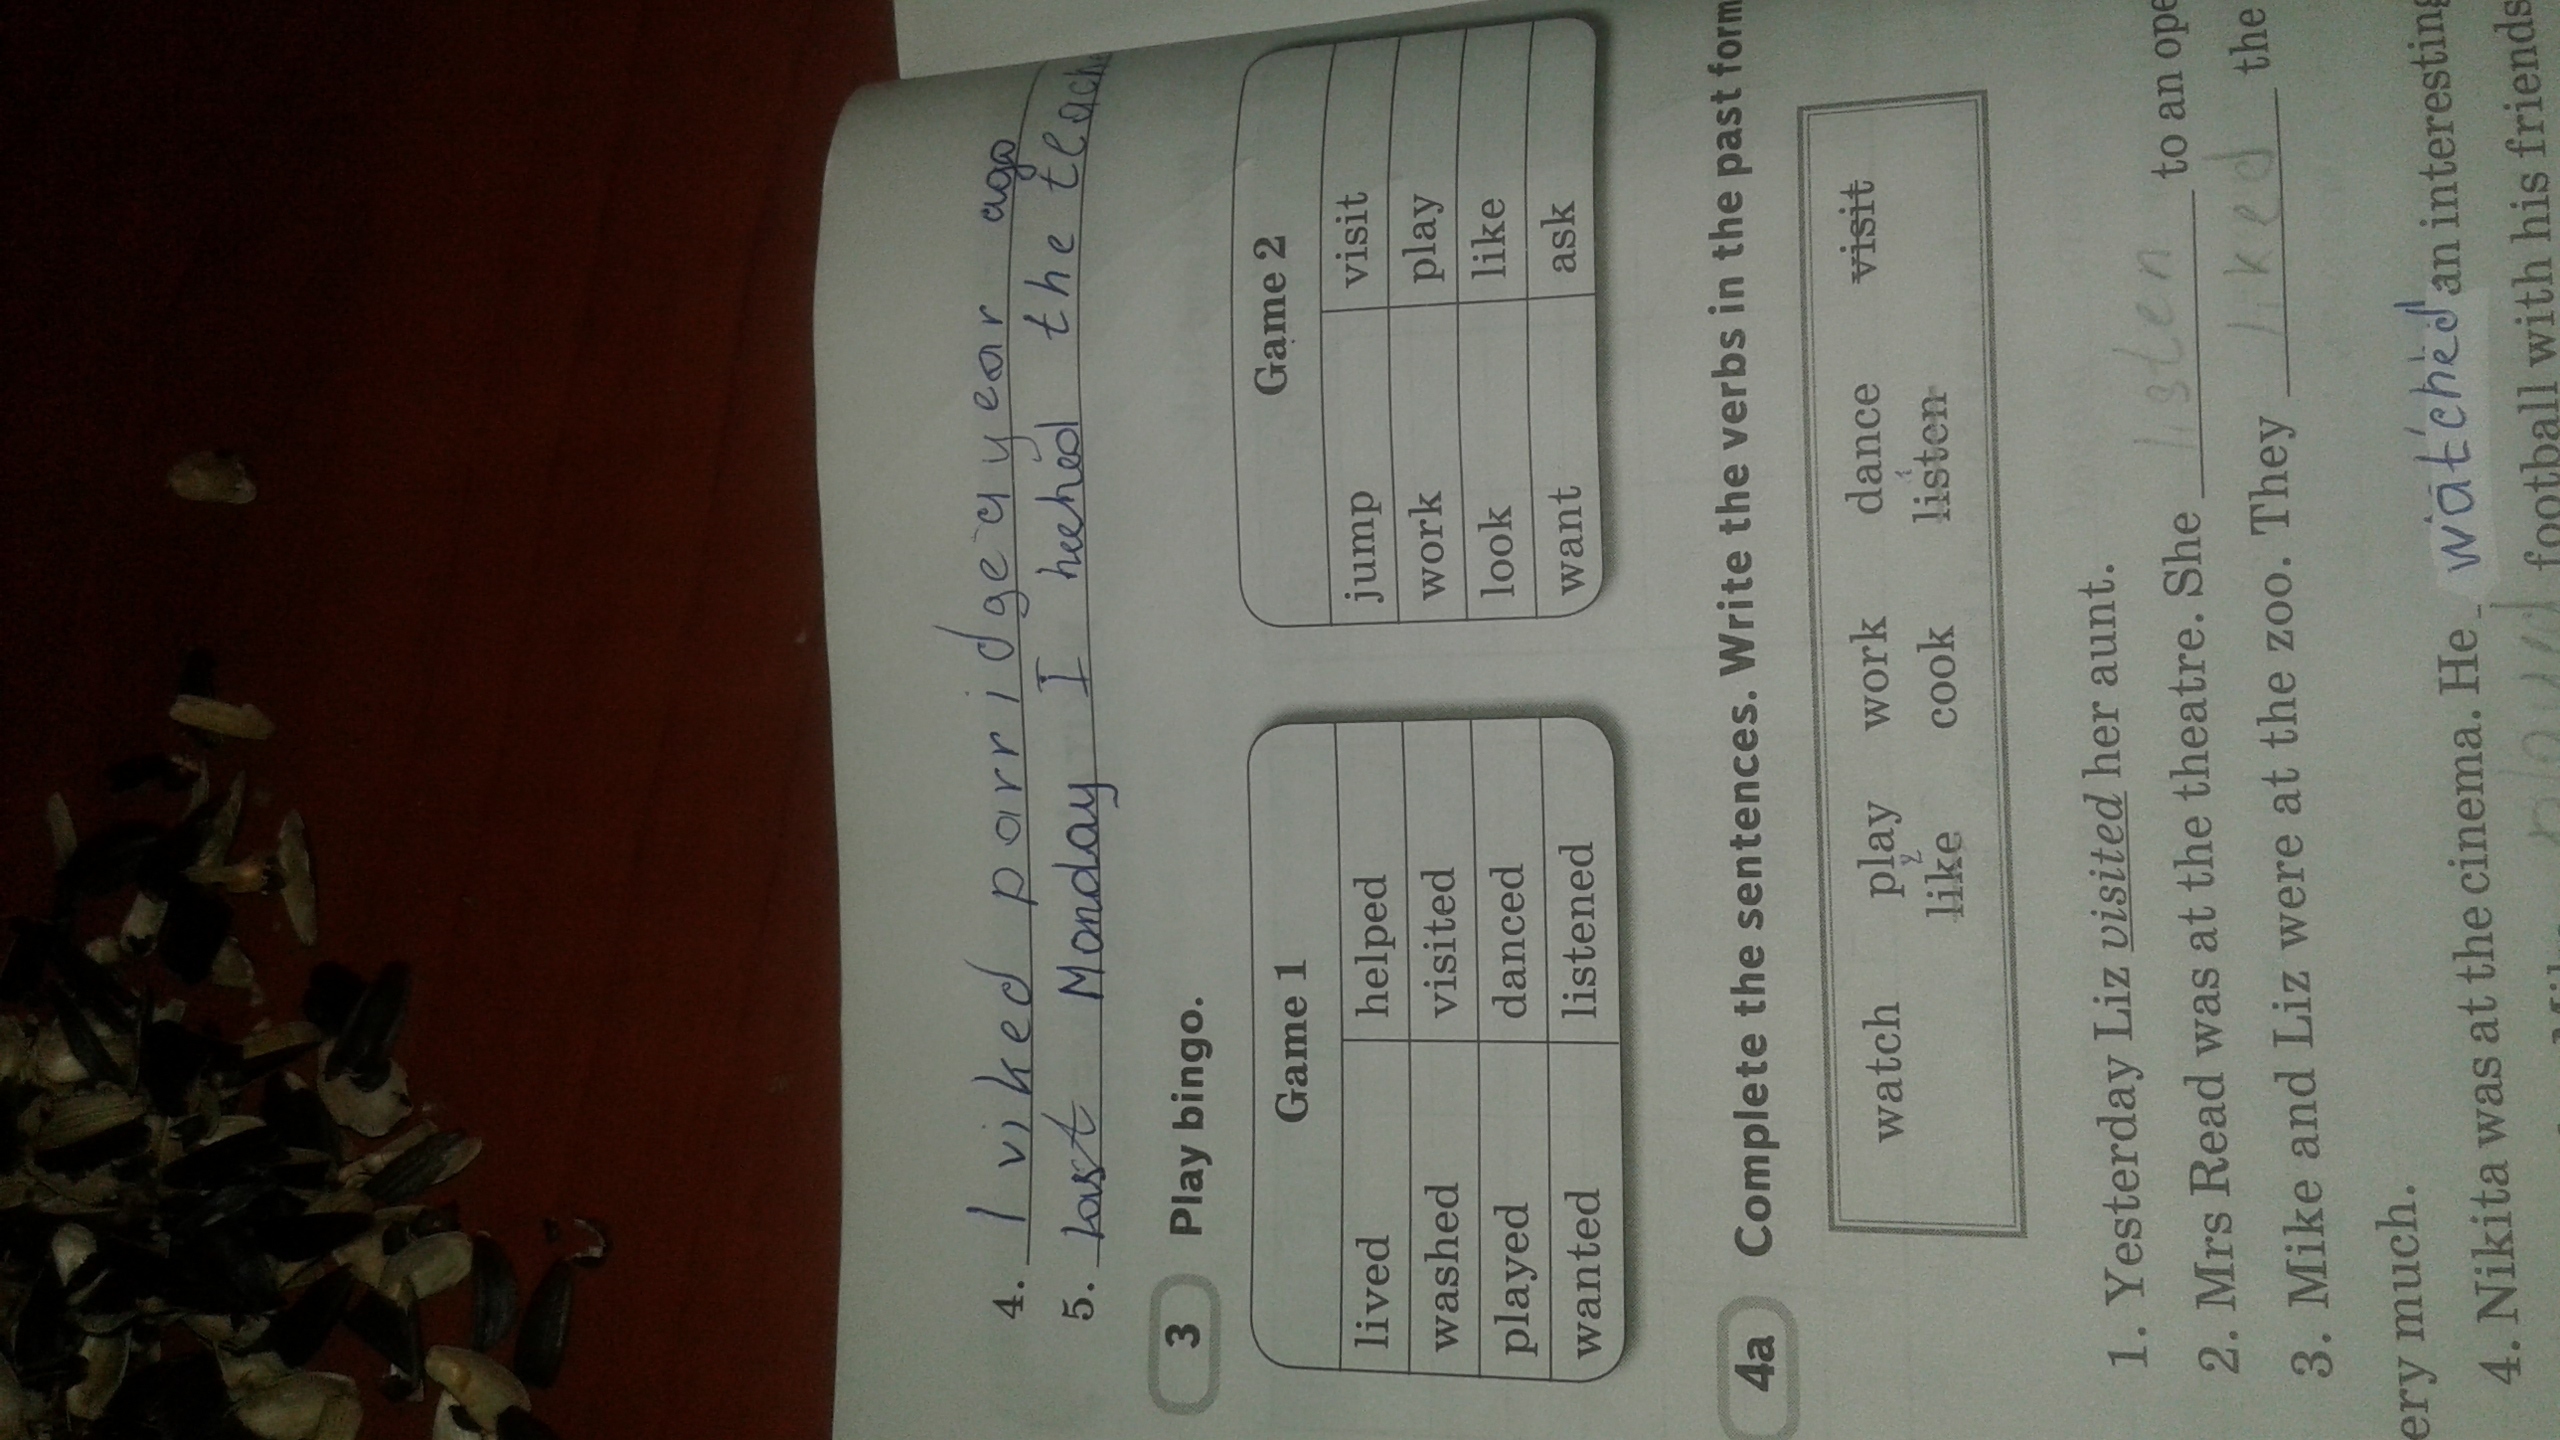 4. I viked porridge a year ago
5. last Monday I heehed the teach
3 Play bingo.
Game 1
lived helped
washed visited
played danced
wanted listened
Game 2
jump visit
work play
look like
want ask
4a Complete the sentences. Write the verbs in the past form
watch play work dance visit
like cook listen
1. Yesterday Liz visited her aunt.
2. Mrs Read was at the theatre. She listen to an ope
3. Mike and Liz were at the zoo. They liked the
ery much.
4. Nikita was at the cinema. He watched an interesting
played football with his friends